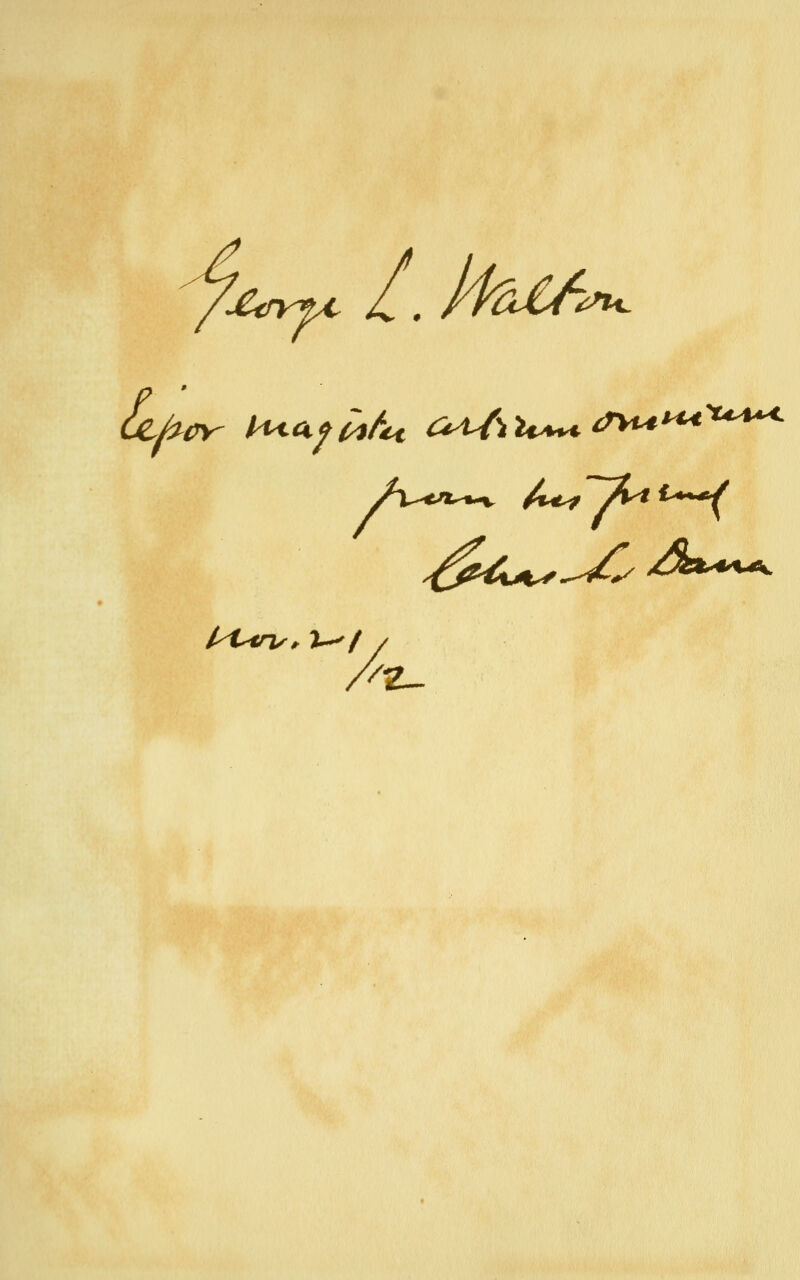 George L. Walton
Lepor magister artium omnium
from his friend
Chas. L. Dana
Nov. 21/12